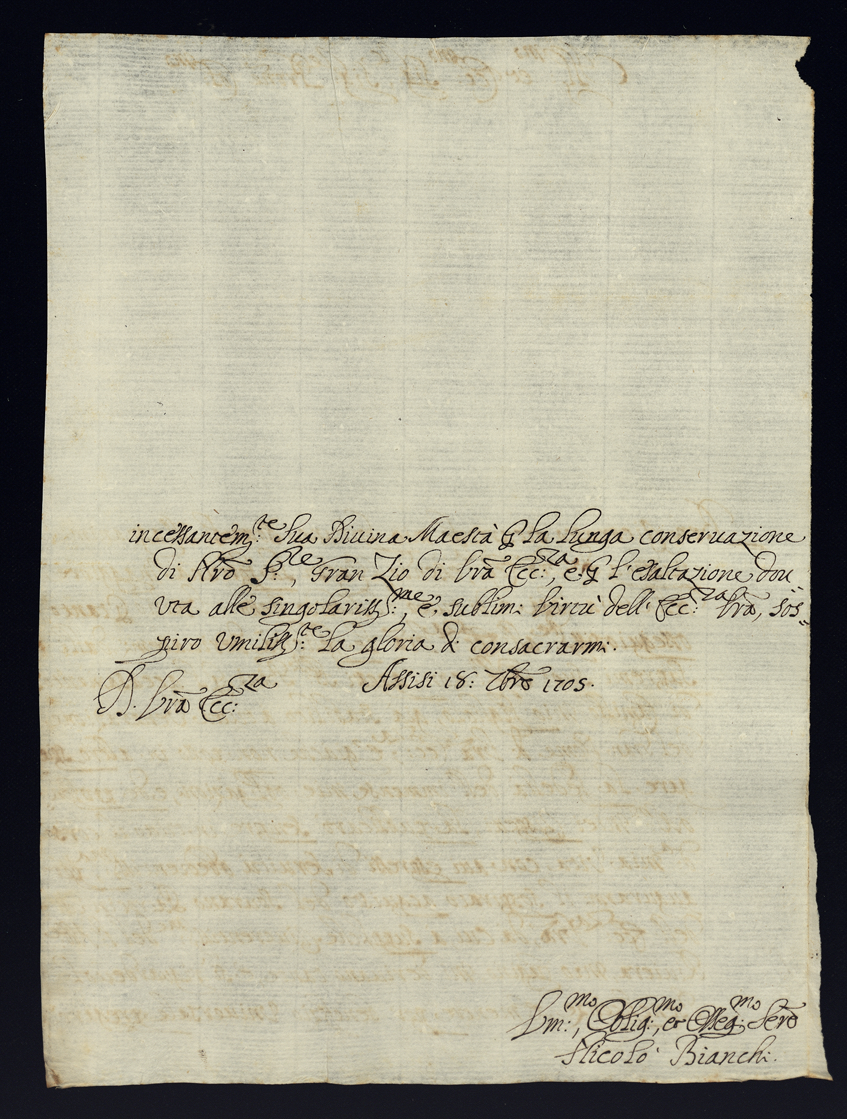 incessantem:te Sua Diuina Maestà p la lunga conseruazione
di Nrõ S:re, Gran Zio di Vrã Ecc:za, e p l'esaltazione dou
uta alle singolariss:me, e sublim: Virtù dell' Ecc:za Vrã, sos=
piro umiliss:te la gloria di consacrarmi.
D. Vrã Ecc:za Assisi 18: 7brẽ 1705.
Vm:mo, Oblig:mo, et Osseq:mo Serẽ
Nicolò Bianchi.